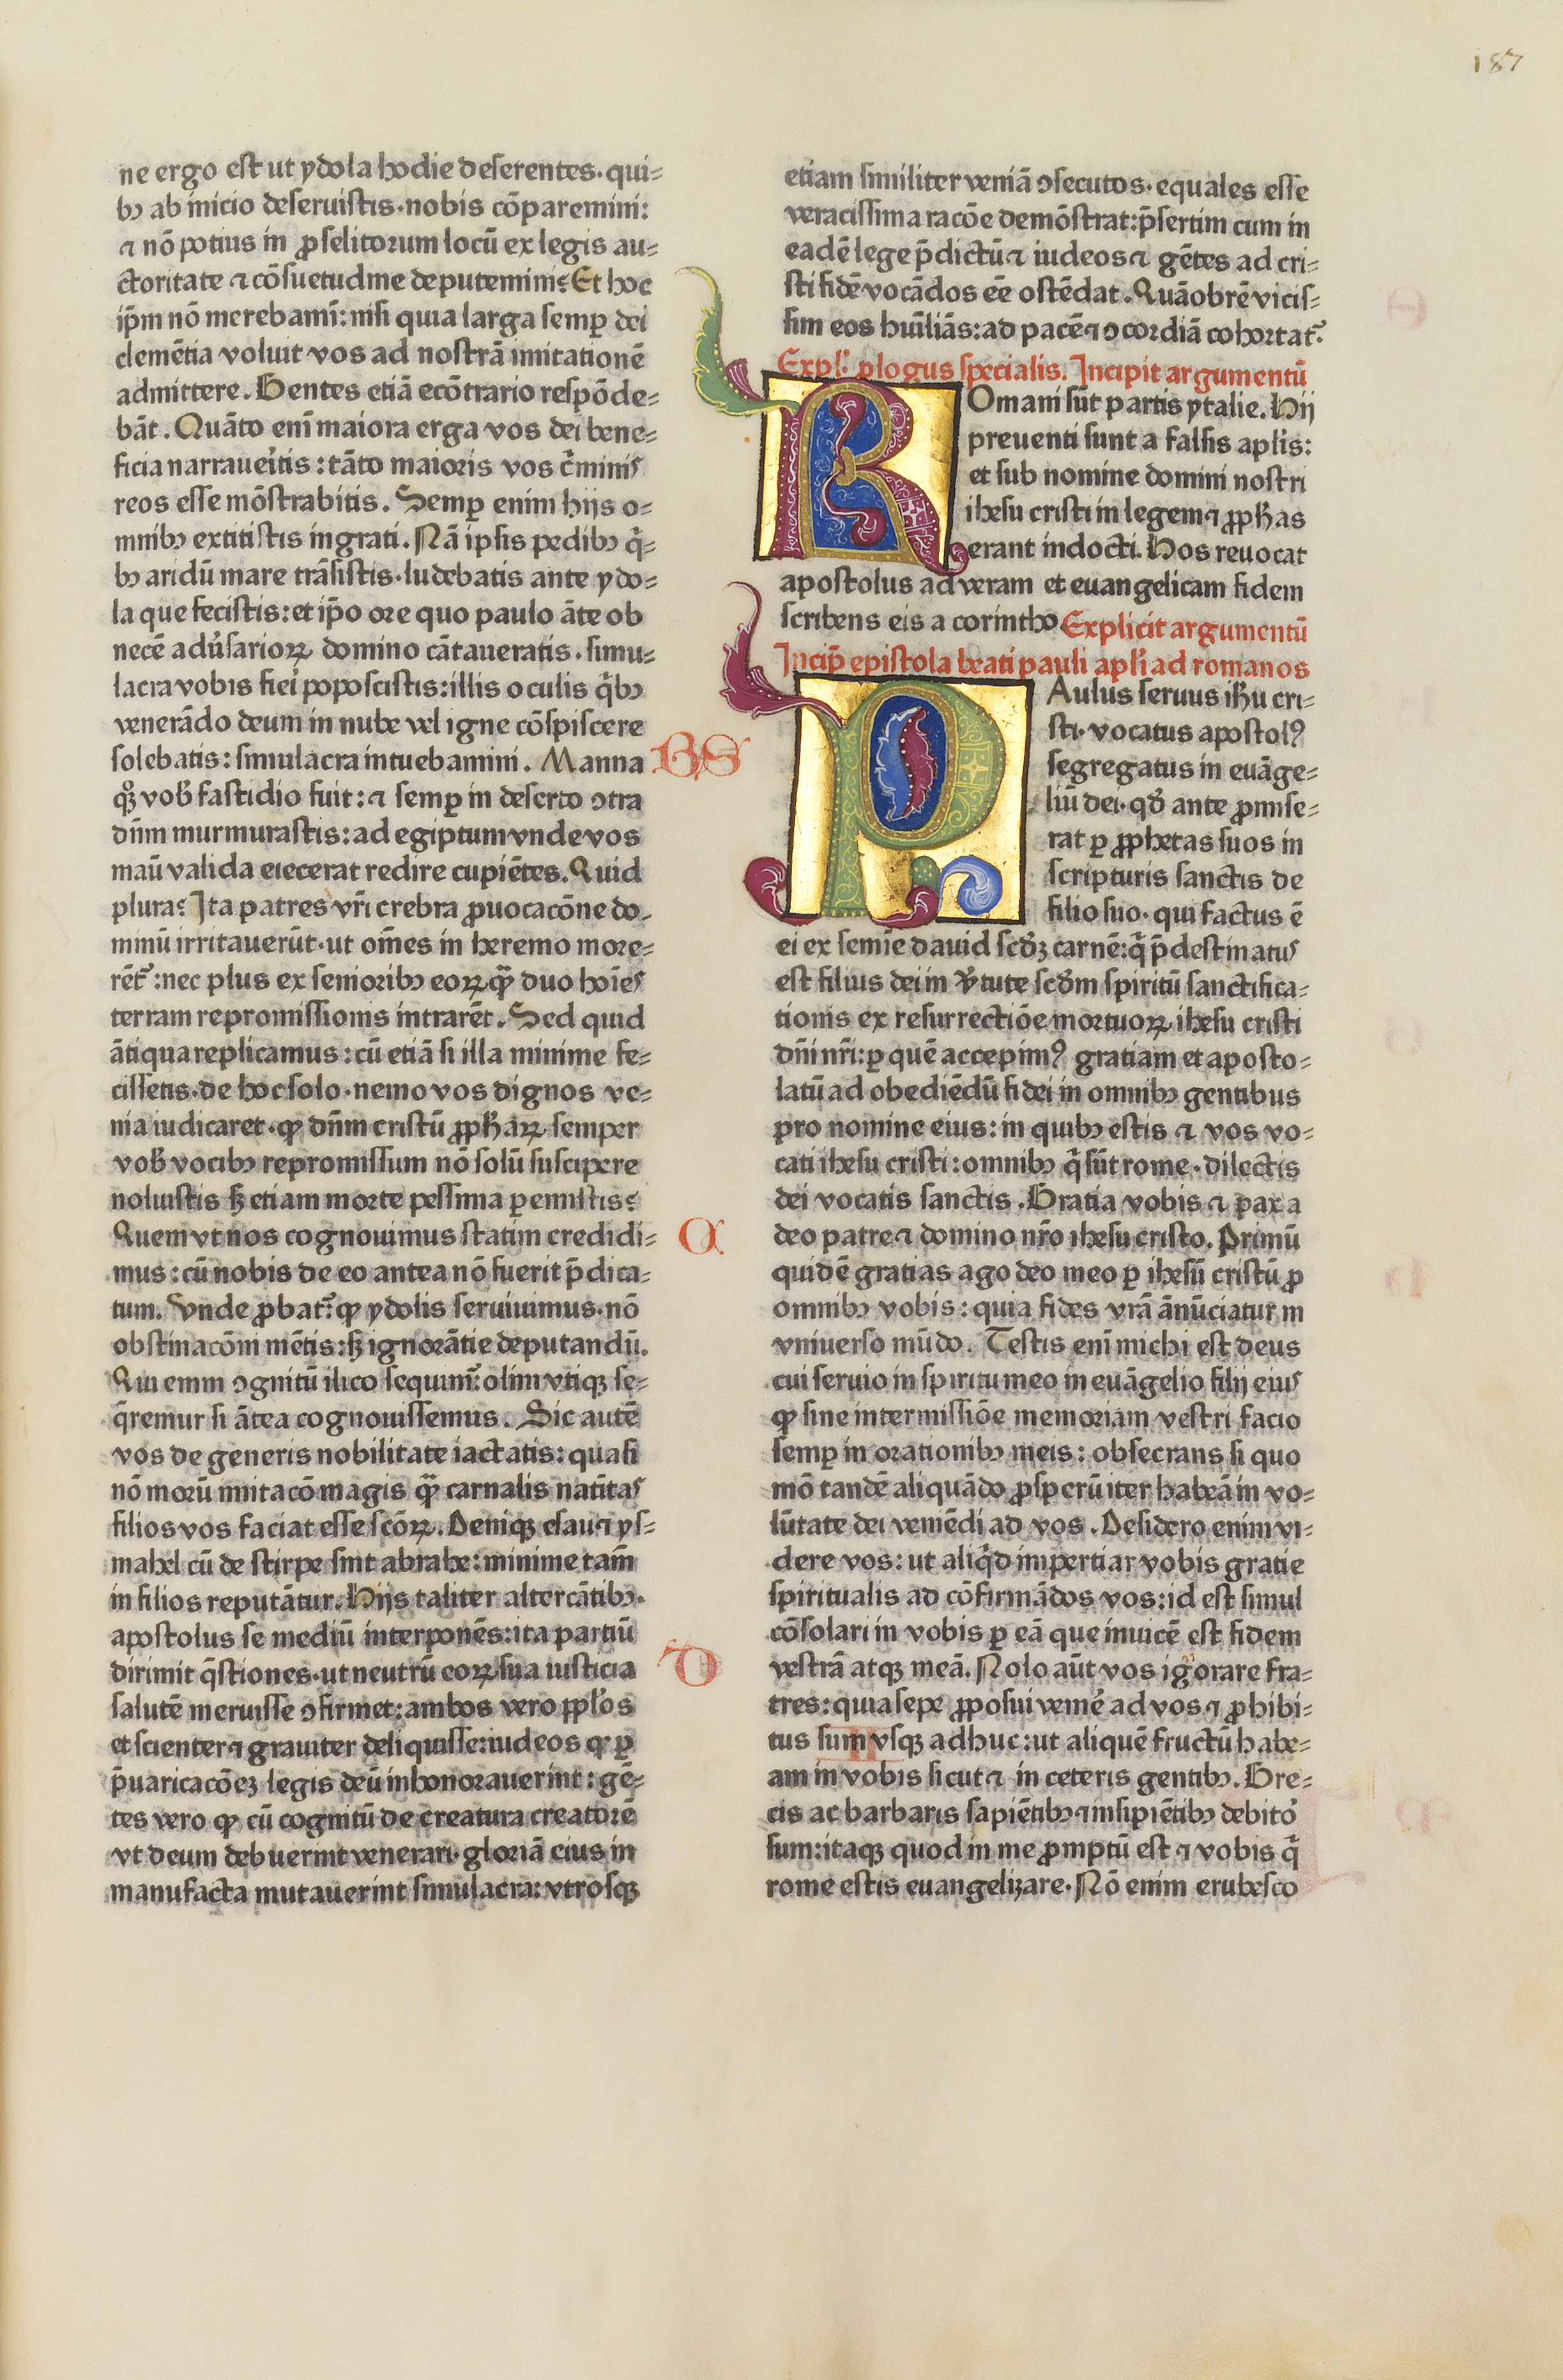 187
ne ergo est ut ydola hodie deserentes· qui⸗
bꝫ ab inicio deseruistis·nobis cōparemini:
⁊ nō potius in ꝓselitorum locū ex legis au⸗
ctoritate ⁊ cōsuetudine deputemini? Et hoc
ip̄m nō merebami͞: nisi quia larga semꝑ dei
clemētia voluit vos ad nostrā imitationē
admittere. Gentes etiā ecōtrario respōde⸗
bāt. Quāto eni͞ maiora erga vos dei bene⸗
ficia narraueritis: tāto maioris vos c̄minis
reos esse mōstrabitis. Semꝑ enim hijs o⸗
mnibꝫ extitistis ingrati. Nā ipsis pedibꝫ q̄⸗
bꝫ aridū mare trāsistis·ludebatis ante ydo⸗
la que fecistis: et ip̄o ore quo paulo āte ob
necē adu'sarioꝝ domino cātaueratis·simu⸗
lacra vobis fiei poposcistis: illis oculis q̄bꝫ
venerādo deum in nube vel igne cōspiscere
solebatis: simulacra intuebamini. Manna
qꝫ vob̄ fastidio fuit: ⁊ semꝑ in deserto ɔtra
dn̄m murmurastis: ad egiptum vnde vos
maū valida eiecerat redire cupiētes. Quid
plura? Ita patres vr̄i crebra ꝓuocacōne do⸗
minū irritauerūt·ut om̄es in heremo more⸗
rēt᷑: nec plus ex senioribꝫ eoꝝ qꝫ duo hoīes
terram repromissionis intrarēt. Sed quid
ātiqua replicamus: cū etiā si illa minime fe⸗
cissetis·de hoc solo·nemo vos dignos ve⸗
nia iudicaret·ꝙ dn̄m cristū ꝓph̄aꝝ semper
vob̄ vocibꝫ repromissum nō solū suscipere
noluistis sꝫ etiam morte pessima ꝑemistis?
Quem vt nos cognouimus statim credidi⸗
mus: cū nobis de eo antea nō fuerit p̄dica⸗
tum. Vnde ꝓbat᷑ ꝙ ydolis seruiuimus·nō
obstinacōni mētis: sꝫ ignorātie deputandū.
Qui enim ɔgnitū ilico sequim᷑: olim vtiqꝫ se⸗
q̄remur si ātea cognouissemus. Sic autē
vos de generis nobilitate iactatis: quasi
nō morū imitacō magis qꝫ carnalis natiuitas
filios vos faciat esse scōꝝ. Deniqꝫ esau ⁊ ys⸗
mahel cū de stirpe sint abrahe: minime tam̄
in filios reputātur. Hijs taliter altercātibꝫ·
apostolus se mediū interponēs: ita partiū
dirimit q̄stiones·ut neutrū eoꝝ sua iusticia
salutē meruisse ɔfirmet: ambos vero pp̄los
et scienter ⁊ grauiter deliquisse: iudeos ꝙ ꝑ
p̄uaricacōeꝫ legis deū inhonorauerint: gē⸗
tes vero ꝙ cū cognitū de creatura creatorē
vt deum debuerint venerari·gloriā eius in
manufacta mutauerint simulacra: vtrosqꝫ
BS
α
D
etiam similiter veniā ɔsecutos·equales esse
veracissima racōe demōstrat: p̄sertim cum in
eadē lege p̄dictū ⁊ iudeos ⁊ gētes ad cri⸗
sti fidē vocādos eē ostēdat. Quāobrē vicis⸗
sim eos hūiliās: ad pacē ⁊ ɔcordiā cohortat᷑.
Expl᷑. ꝓlogus specialis. Incipit argumentū
ROmani sūt partis ytalie. Hij
preuenti sunt a falsis apl̄is:
et sub nomine domini nostri
ihesu cristi in legem ⁊ ꝓph̄as
erant indocti. Hos reuocat
apostolus ad veram et euangelicam fidem
scribens eis a corintho Explicit argumentū
Incip̄ epistola beati pauli apl̄i ad romanos
PAulus seruus ih̄u cri⸗
sti·vocatus apostolꝰ
segregatus in euāge⸗
liū dei·qd̄ ante ꝓmise⸗
rat ꝑ ꝓphetas suos in
scripturis sanctis de
filio suo·qui factus ē
ei ex semīe dauid scd̄ꝫ carnē: q̄ p̄destinatus
est filius dei in v̄tute scd̄m spiritū sanctifica⸗
tionis ex resurrectiōe mortuoꝝ ihesu cristi
dn̄i nr̄i: ꝑ quē accepimꝰ gratiam et aposto⸗
latū ad obediēdū fidei in omnibꝫ gentibus
pro nomine eius: in quibꝫ estis ⁊ vos vo⸗
cati ihesu cristi: omnibꝫ q̄ sūt rome·dilectis
dei vocatis sanctis. Gratia vobis ⁊ pax a
deo patre ⁊ domino nr̄o ihesu cristo. Primū
quidē gratias ago deo meo ꝑ ihesū cristū ꝓ
omnibꝫ vobis: quia fides vrā ānūciatur in
vniuerso mūdo. Testis eni͞ michi est deus
cui seruio in spiritu meo in euāgelio filij eius
ꝙ sine intermissiōe memoriam vestri facio
semꝑ in orationibꝫ meis: obsecrans si quo
mō tandē aliquādo ꝓsꝑerū iter habeā in vo⸗
lūtate dei veniēdi ad vos. Desidero enim vi⸗
dere vos: ut aliq̄d impertiar vobis gratie
spiritualis ad cōfirmādos vos: id est simul
cōsolari in vobis ꝑ eā que inuicē est fidem
vestrā atqꝫ meā. Nolo aūt vos igorare fra⸗
tres: quia sepe ꝓposui veniē ad vos ⁊ ꝓhibi⸗
tus sum vsqꝫ adhuc: ut aliquē fructū habe⸗
am in vobis sicut ⁊ in ceteris gentibꝫ. Gre⸗
cis ac barbaris sapiētibꝫ ⁊ insipiētibꝫ debitor
sum: itaqꝫ quod in me ꝓmptū est ⁊ vobis q̄
rome estis euangelizare. Nō enim erubesco